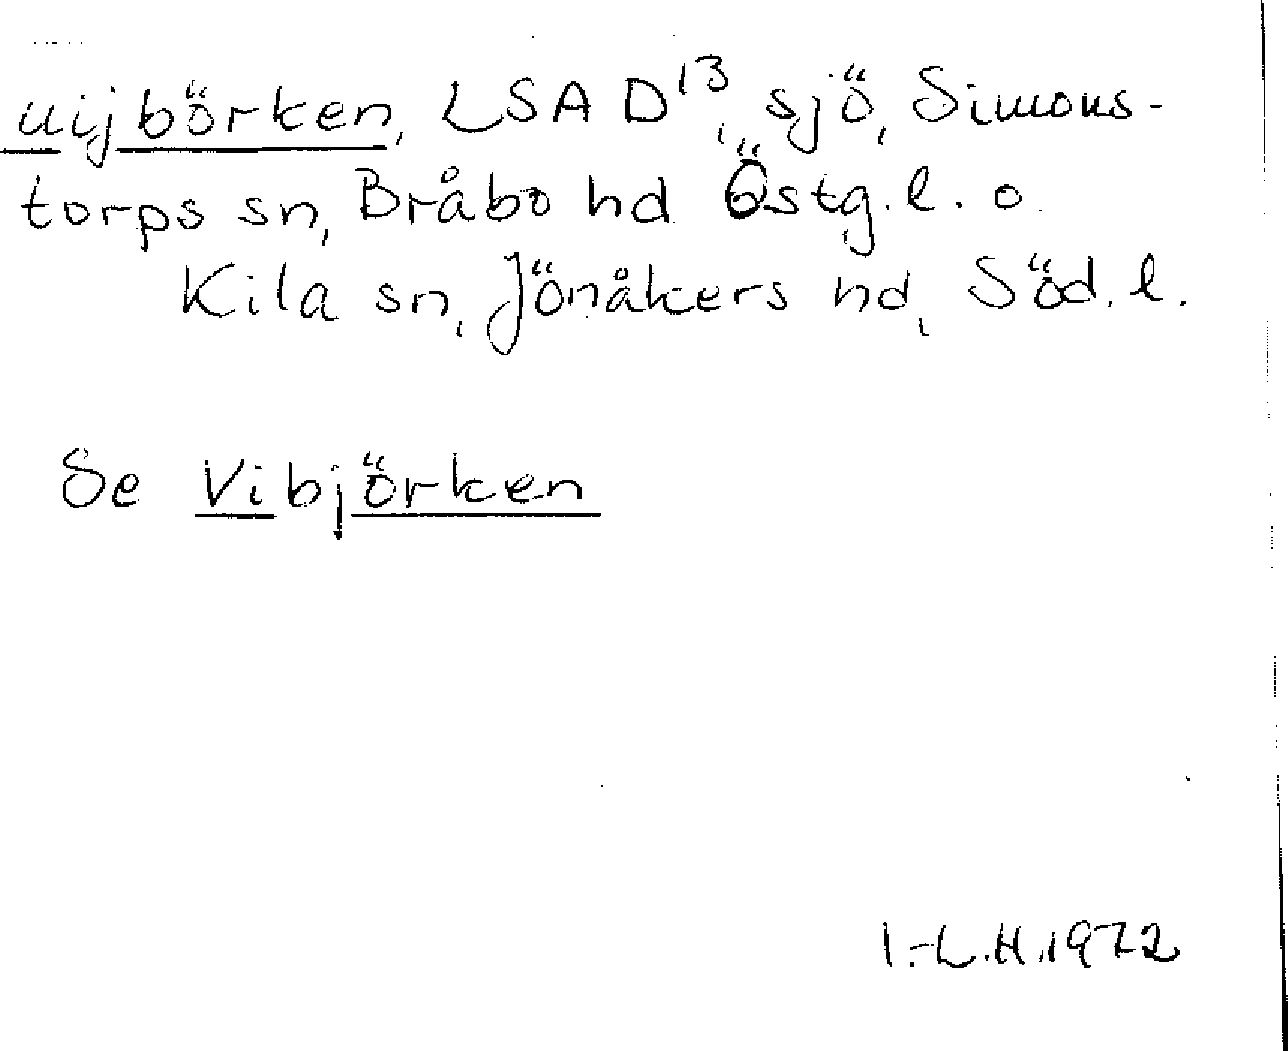 uijbörken, LSA D13, sjö, Simons-
torps sn, Bråbo hd Östg.l. o.
Kila sn, Jönåkers hd, Söd.l.
Se Vibjörken
I.-L.H. 1972